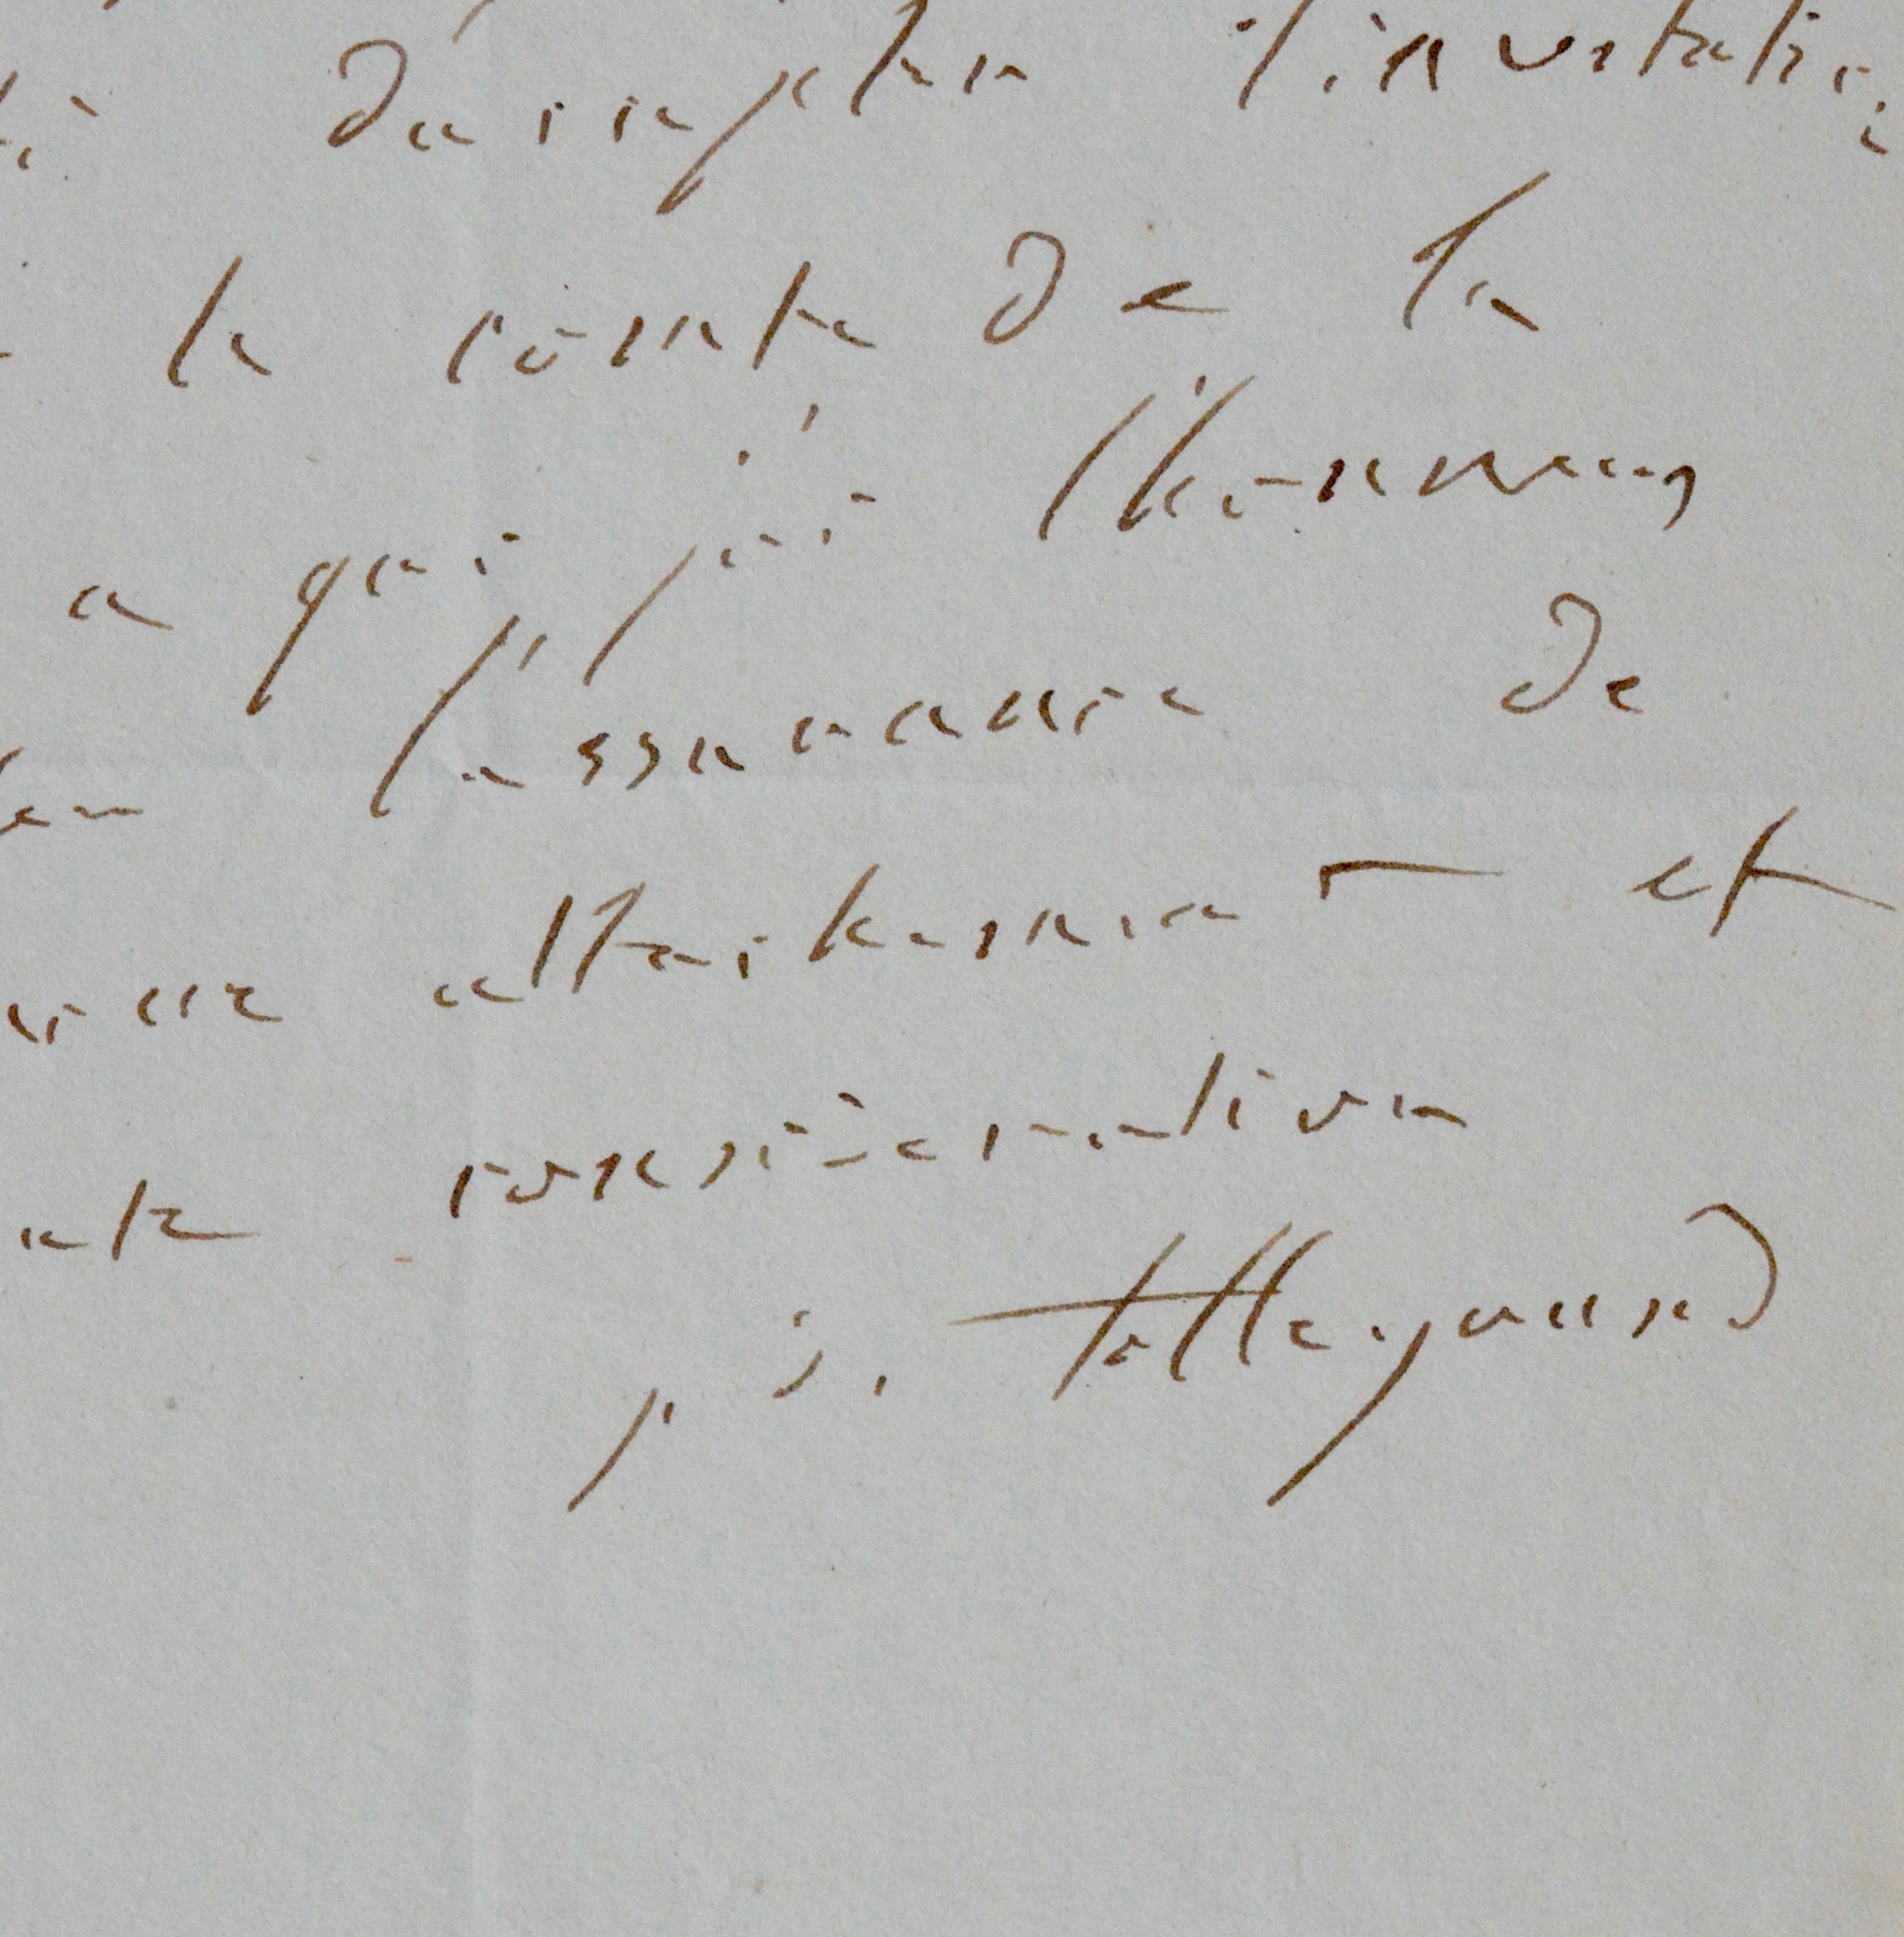 d'accepter l'invitation
le comte de la
a qui j'ai l'honneur
l'assurance de
attachement et
consideration
p. d. talleyrand